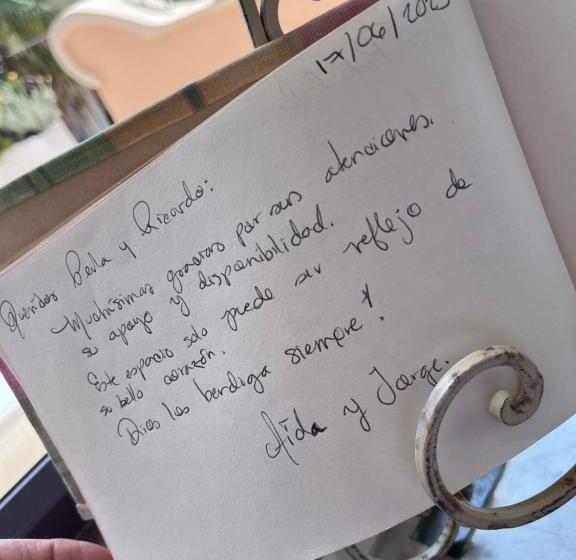 17/06/2023
Queridos Perla y Ricardo:
Muchísimas gracias por sus atenciones,
su apoyo y disponibilidad.
Este espacio solo puede ser reflejo de
su bello corazón.
Dios los bendiga siempre!
Aída y Jorge.